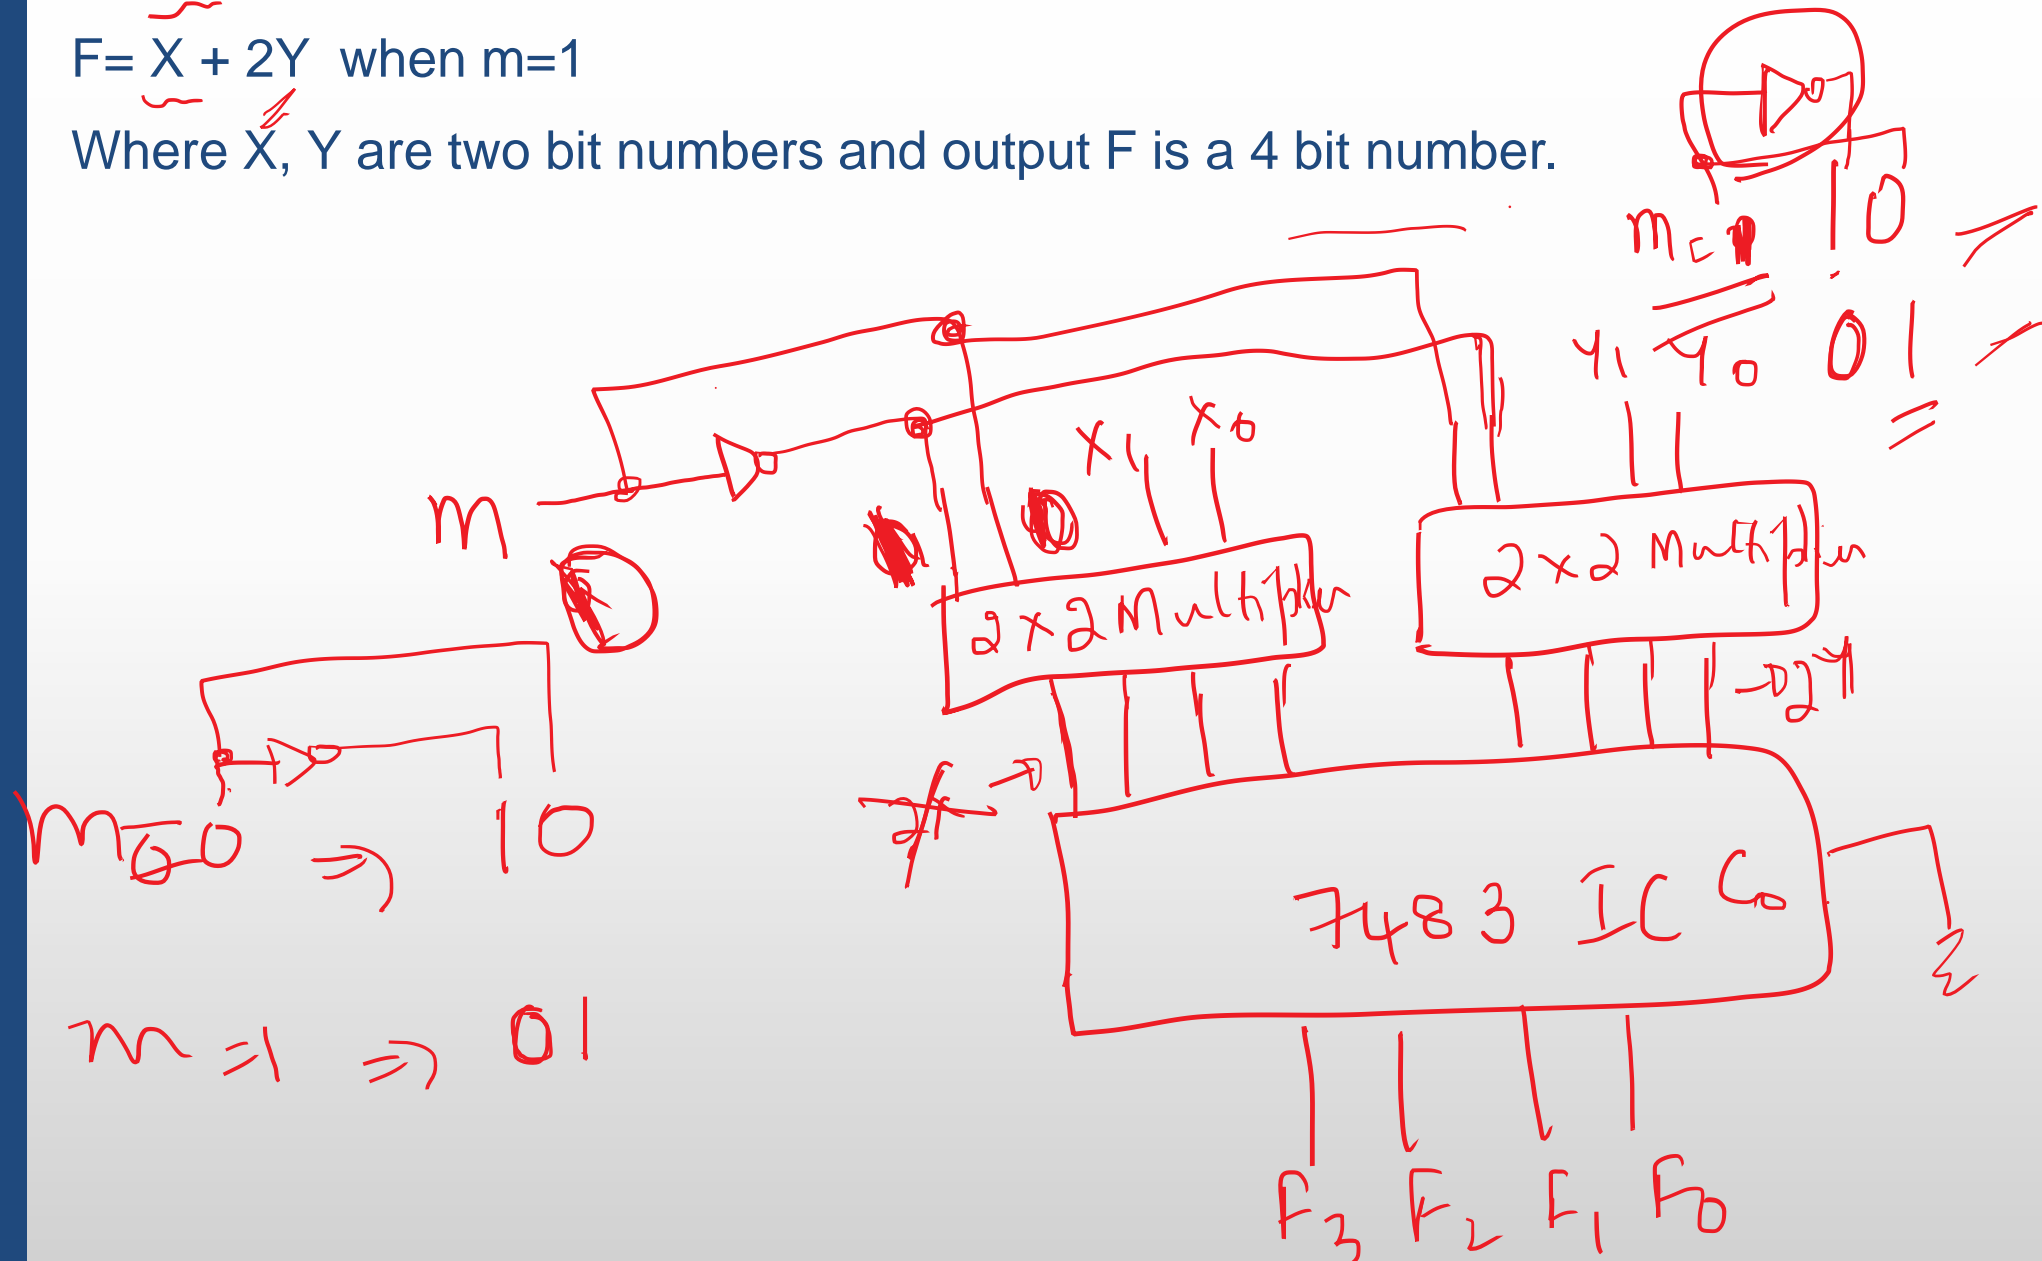 F= X + 2Y when m=1
Where X, Y are two bit numbers and output F is a 4 bit number.
m = 1 0
Y1 Y0 0 1
X1 X0
m
2x2 Multiplier
2x2 Multiplier
→ 2Y
m=0 ⇒ 1 0
7483 IC C0
m=1 ⇒ 01
F3 F2 F1 F0